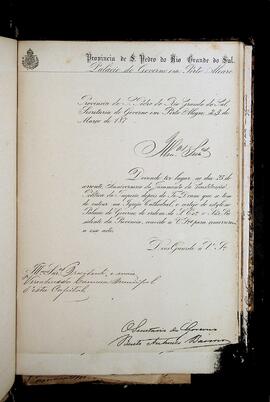 Provincia de S. Pedro do Rio Grande do Sul.
Palacio do Governo em Porto Alegre
Provincia de S. Pedro do Rio Grande do Sul,
Secretaria do Governo em Porto Alegre, 23 de
Março de 187
Devendo ter lugar no dia 25 do
corrente, anniversario do juramento da Constituição
Politica do Imperio, depois do Te Deum que se tem
de entoar na Igreja Cathedral, o cortejo do estylo em
Palacio do Governo, de ordem de S. Exª o Sr. Pre
sidente da Provincia, convido a V. Sªs para concorrerem
a esse acto.
Deus Guarde a Vª Sª
Presidente, e mais
Vereadores da Camara Municipal
desta Capital
O Secretario do Governo